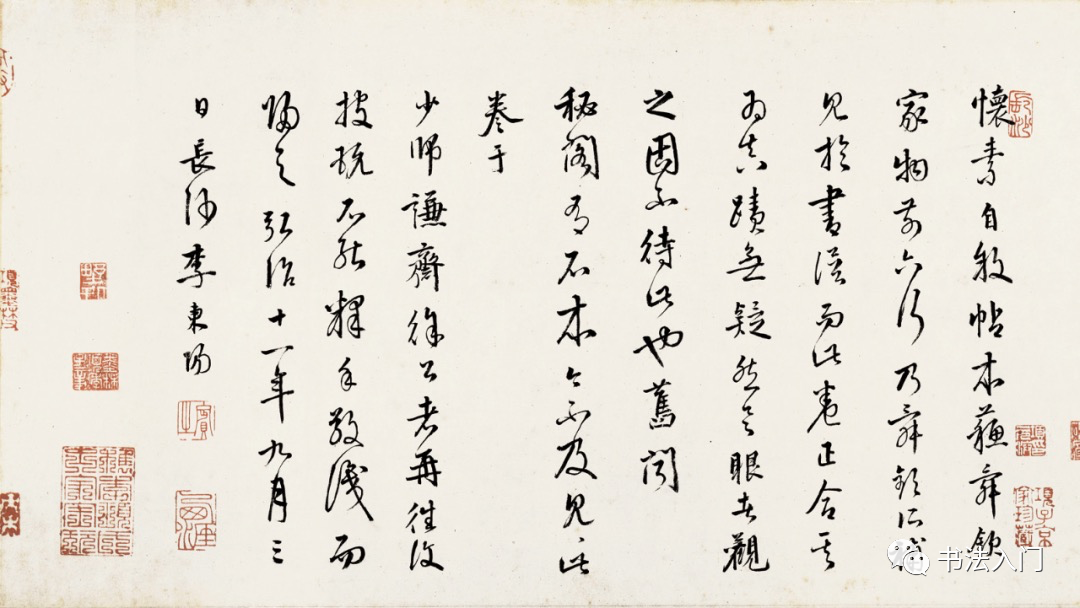 懷素自敘帖本蘇舜欽
家物前六行乃舜欽所補
見於書譜而此卷正合其
為真蹟無疑然具眼者觀
之固不待此也舊聞
秘閣有石本今不及見此
卷于
少師謙齋徐公者再往復
披玩不能釋手敬識而
歸之弘治十一年九月三
日長沙李東陽
項子京家珍藏
书法入门